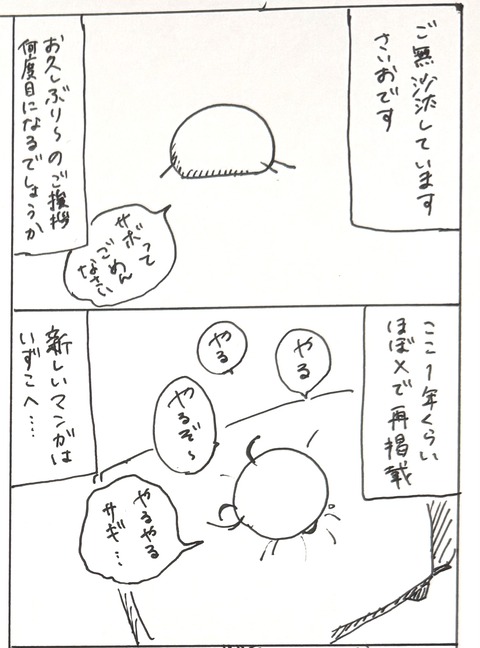 ご無沙汰しています
さいおです
お久しぶり〜のご挨拶
何度目になるでしょうか
サボって
ごめん
なさい
ここ1年くらい
ほぼXで再掲載
やる
やる
やるぞ〜
やるやる
サギ…
新しいマンガは
いずこへ……